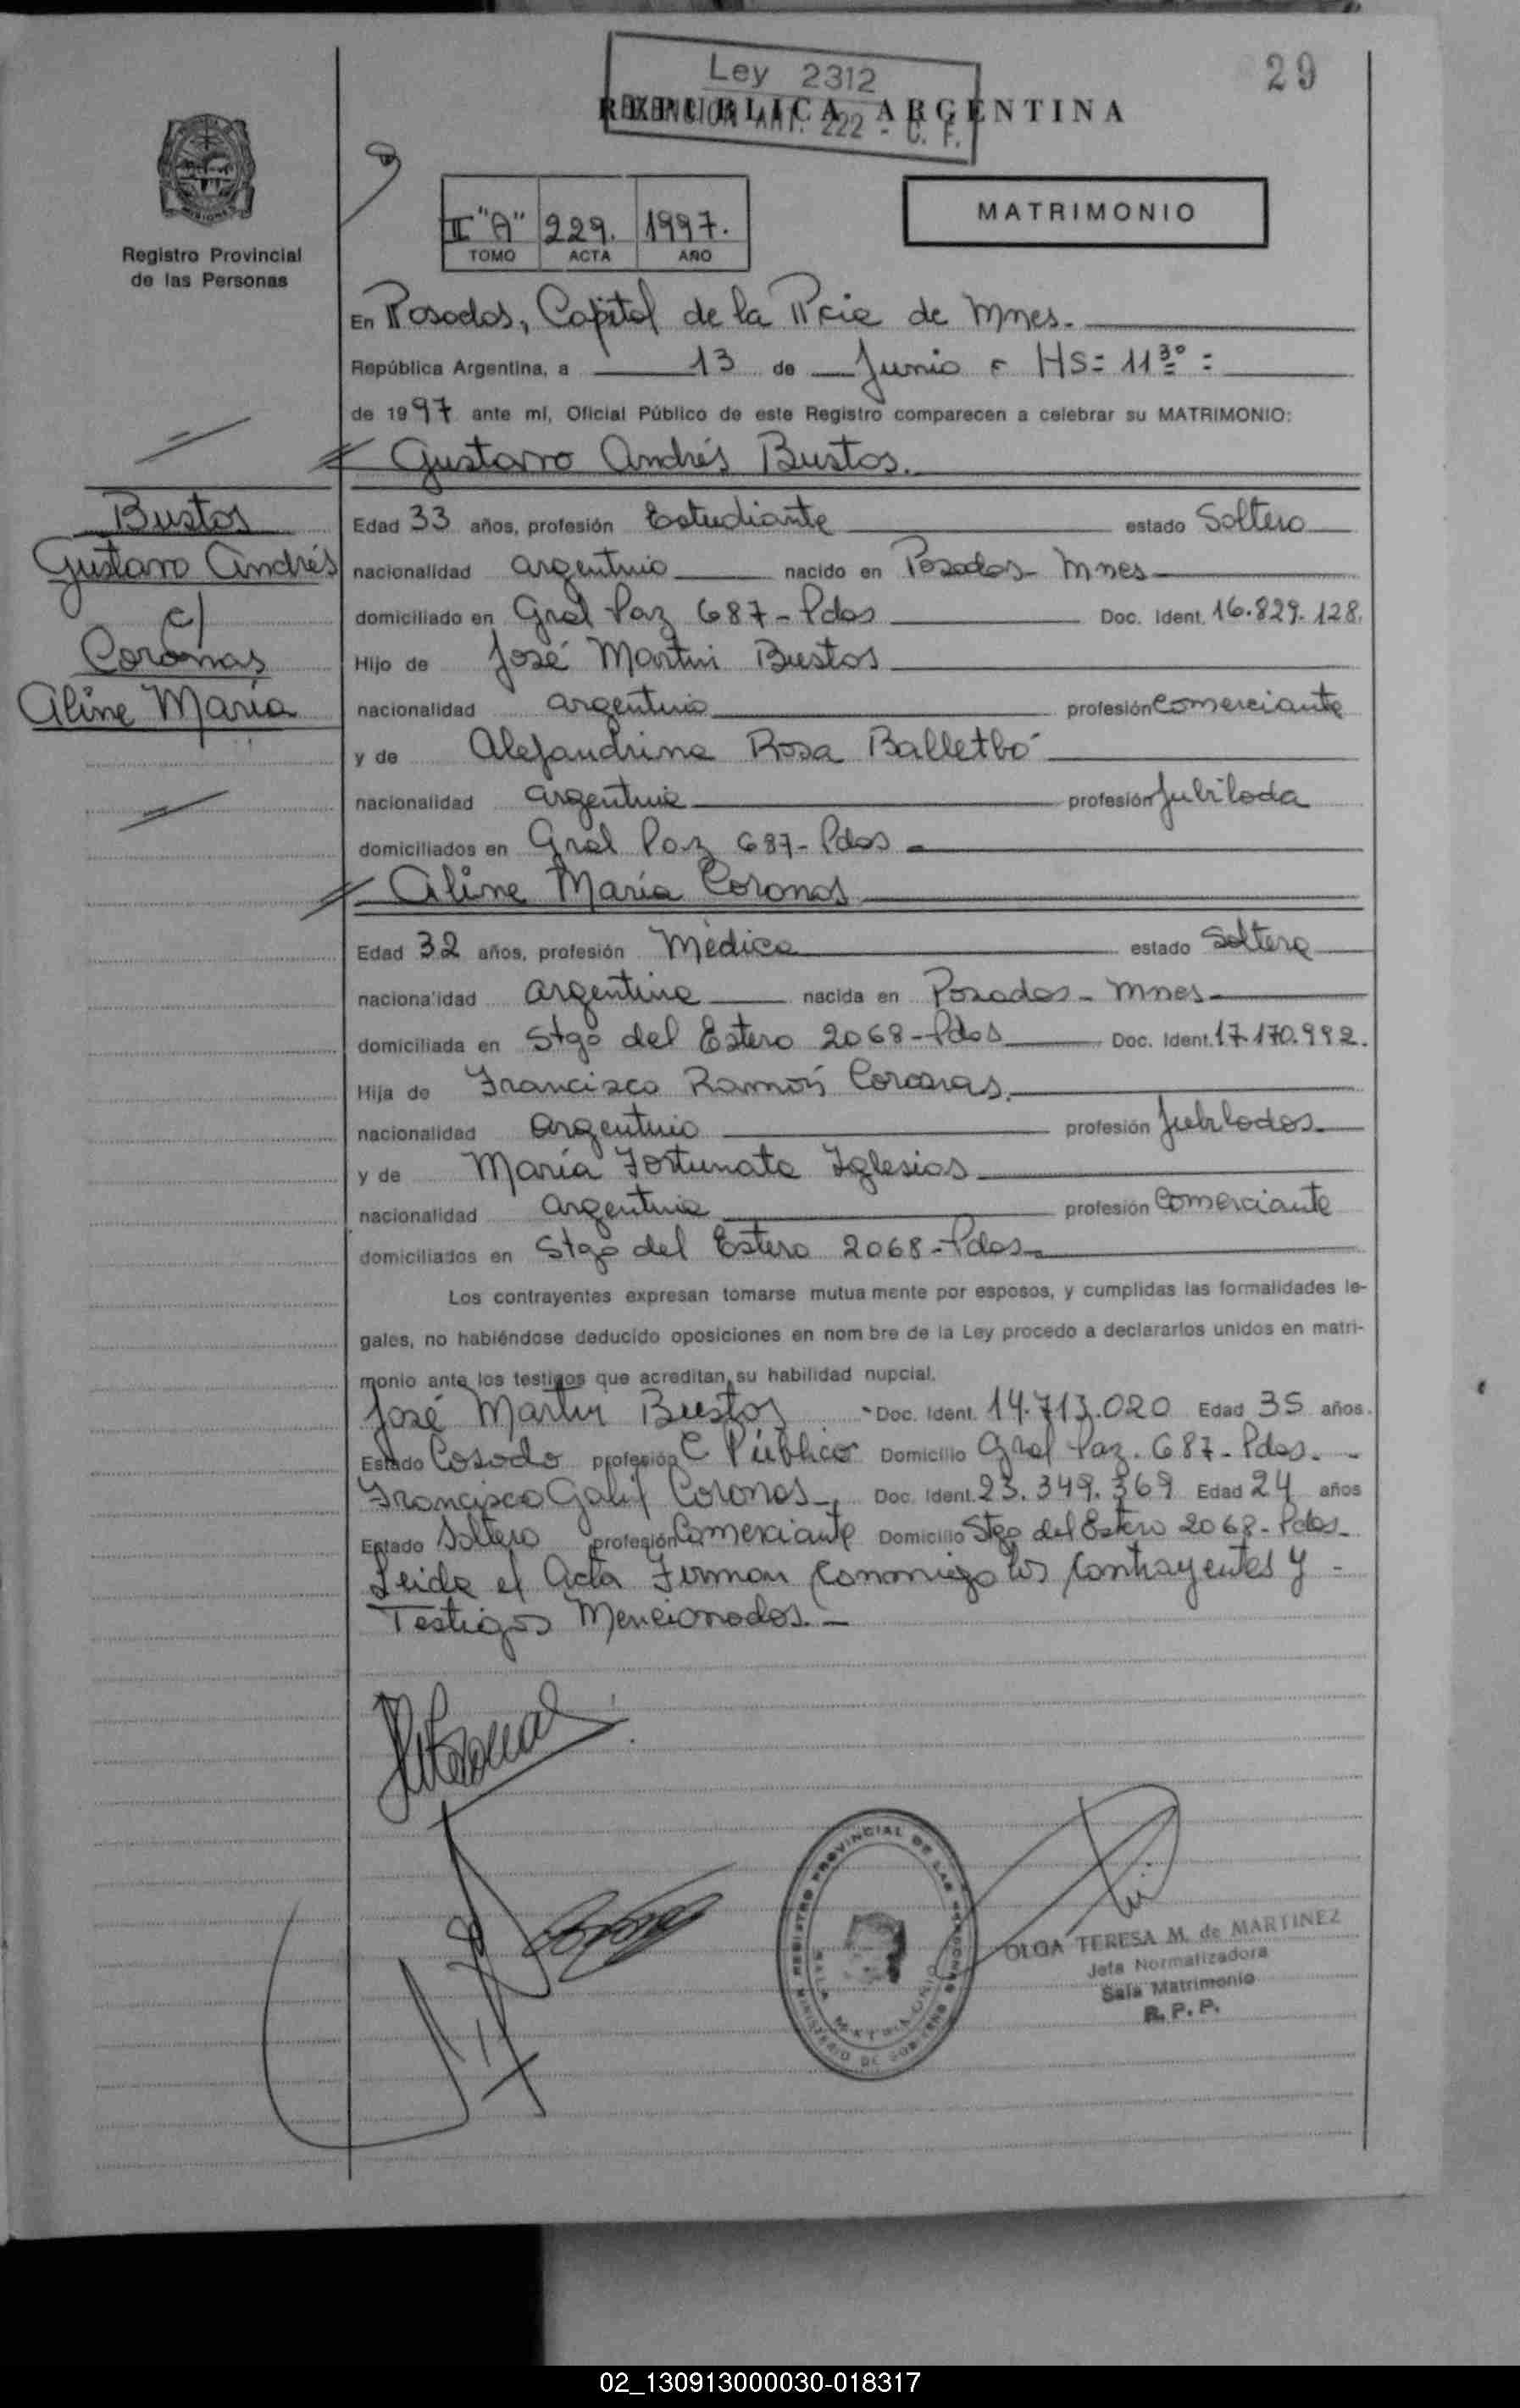 29
Ley 2312
EXENCION ART. 222 - C. F.
REPUBLICA ARGENTINA
MISIONES
Registro Provincial
de las Personas
II "A" 229. 1997.
TOMO ACTA AÑO
MATRIMONIO
En Posadas, Capital de la Pcia de Mnes.
República Argentina, a 13 de Junio HS= 11 30 =
de 1997 ante mí, Oficial Público de este Registro comparecen a celebrar su MATRIMONIO:
Gustavo Andrés Bustos.
Bustos
Gustavo Andrés
c/
Coronas
Aline María
Edad 33 años, profesión Estudiante estado Soltero
nacionalidad argentino nacido en Posadas - Mnes
domiciliado en Gral Paz 687 - Pdas Doc. Ident. 16.829.128.
Hijo de José Martin Bustos
nacionalidad argentino profesión Comerciante
y de Alejandrina Rosa Balletbó
nacionalidad argentina profesión Jubilada
domiciliados en Gral Paz 687 - Pdas
Aline María Coronas
Edad 32 años, profesión Médica estado Soltera
naciona'idad argentina nacida en Posadas - Mnes
domiciliada en Stgo del Estero 2068 - Pdas Doc. Ident. 17.170.992.
Hija de Francisco Ramón Coronas.
nacionalidad argentino profesión Jubilados
y de María Fortunata Iglesias
nacionalidad argentina profesión Comerciante
domiciliados en Stgo del Estero 2068 - Pdas
Los contrayentes expresan tomarse mutua mente por esposos, y cumplidas las formalidades le-
gales, no habiéndose deducido oposiciones en nom bre de la Ley procedo a declararlos unidos en matri-
monio ante los testigos que acreditan su habilidad nupcial.
José Martin Bustos Doc. Ident. 14.713.020 Edad 35 años.
Estado Casado profesión C Público Domicilio Gral Paz. 687 - Pdas. -
Francisco Galif Coronas, Doc. Ident. 23.349.369 Edad 24 años
Estado Soltero profesión Comerciante Domicilio Stgo del Estero 2068 - Pdas
Leida el Acta Firman Conmigo los Contrayentes y -
Testigos Mencionados. -
REGISTRO PROVINCIAL DE LAS PERSONAS
SALA MATRIMONIO
MINISTERIO DE GOBIERNO
OLGA TERESA M. de MARTINEZ
Jefa Normatizadora
Sala Matrimonio
R. P. P.
02_130913000030-018317